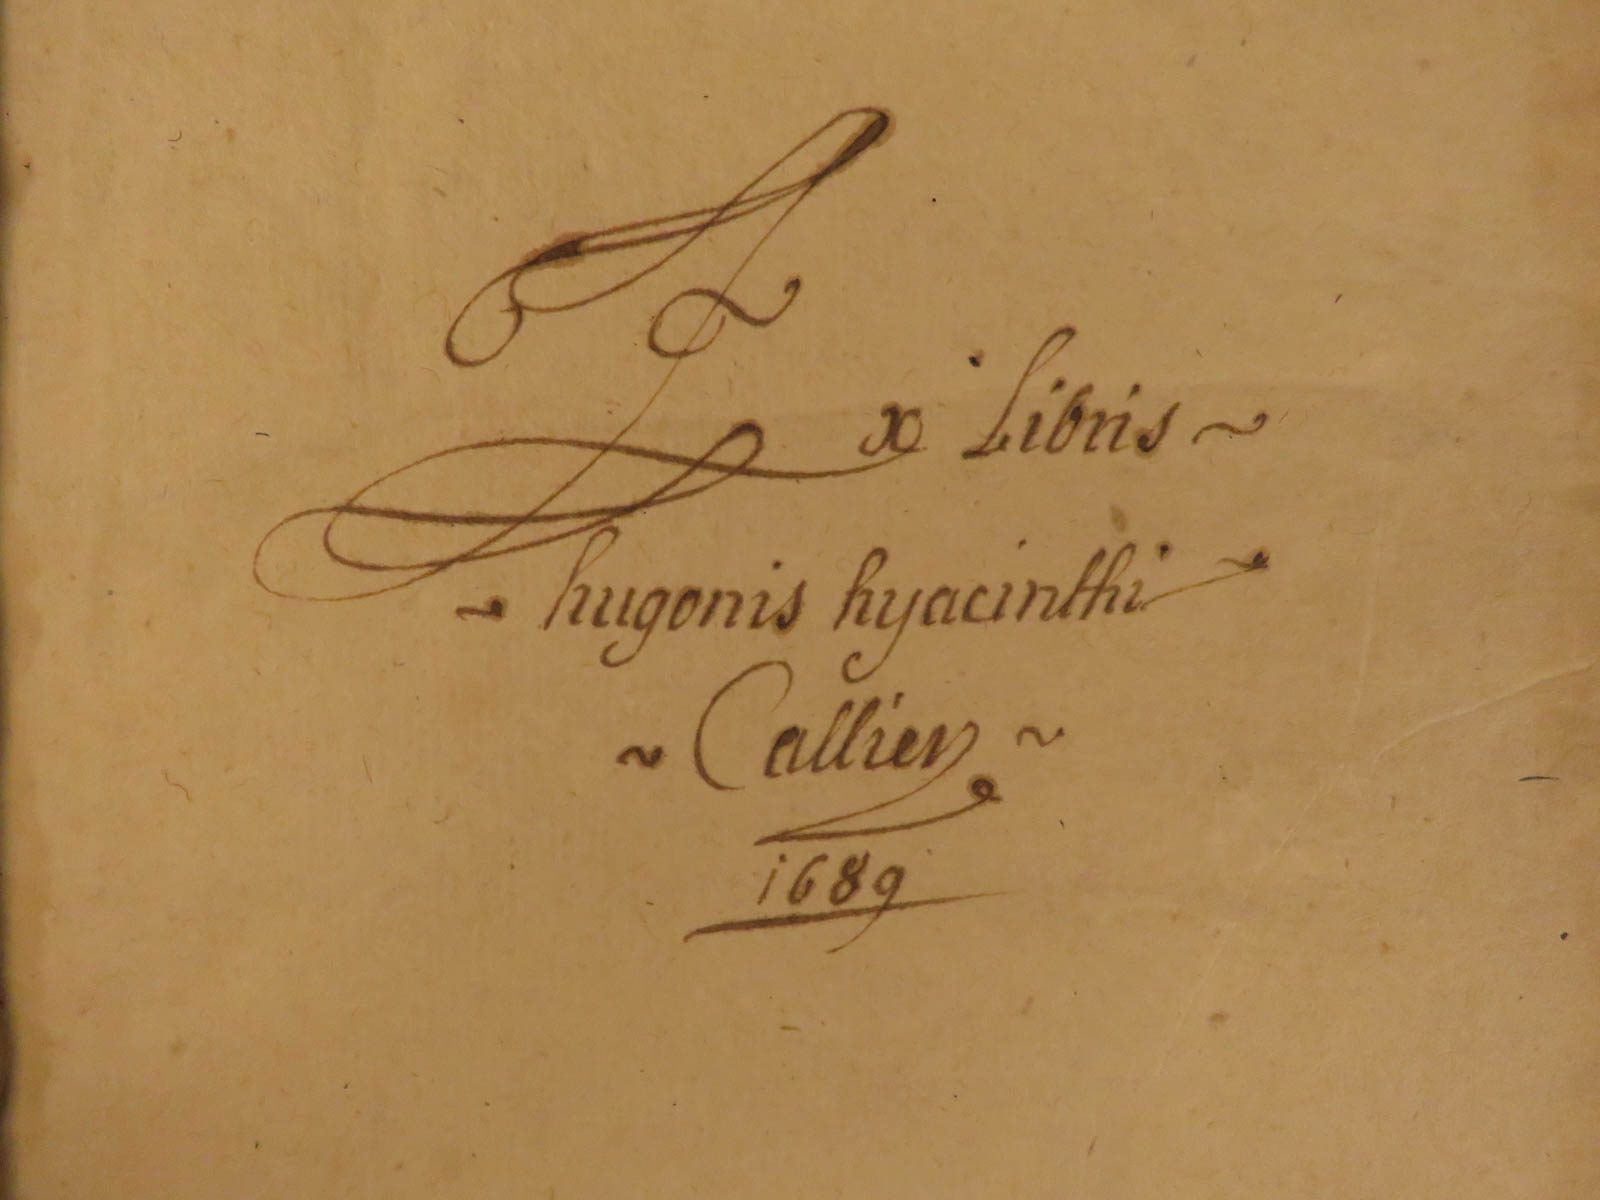 Ex Libris ~
~ hugonis hyacinthi
~ Callier ~
1689